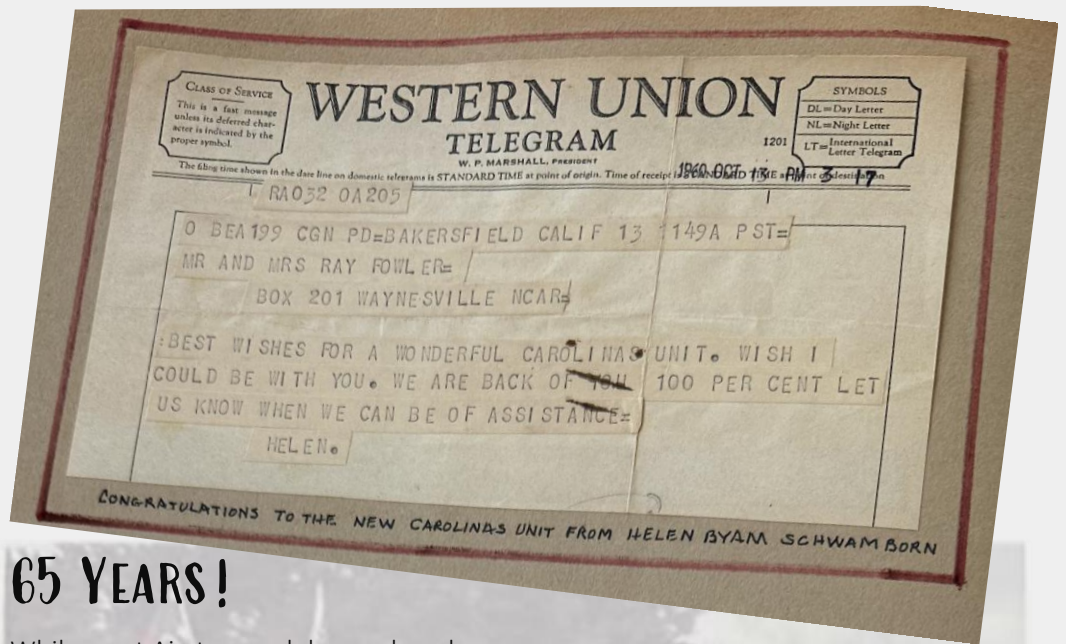 CLASS OF SERVICE
This is a fast message
unless its deferred char-
acter is indicated by the
proper symbol.
WESTERN UNION
TELEGRAM
W. P. MARSHALL, PRESIDENT
1201
SYMBOLS
DL=Day Letter
NL=Night Letter
LT=International Letter Telegram
The filing time shown in the date line on domestic telegrams is STANDARD TIME at point of origin. Time of receipt is STANDARD TIME at point of destination
1960 OCT 13 PM 3 17
RA032 OA205
O BEA199 CGN PD=BAKERSFIELD CALIF 13 1149A PST=
MR AND MRS RAY FOWLER=
BOX 201 WAYNESVILLE NCAR=
:BEST WISHES FOR A WONDERFUL CAROLINAS UNIT. WISH I
COULD BE WITH YOU. WE ARE BACK OF YOU 100 PER CENT LET
US KNOW WHEN WE CAN BE OF ASSISTANCE=
HELEN.
CONGRATULATIONS TO THE NEW CAROLINAS UNIT FROM HELEN BYAM SCHWAMBORN
65 YEARS!